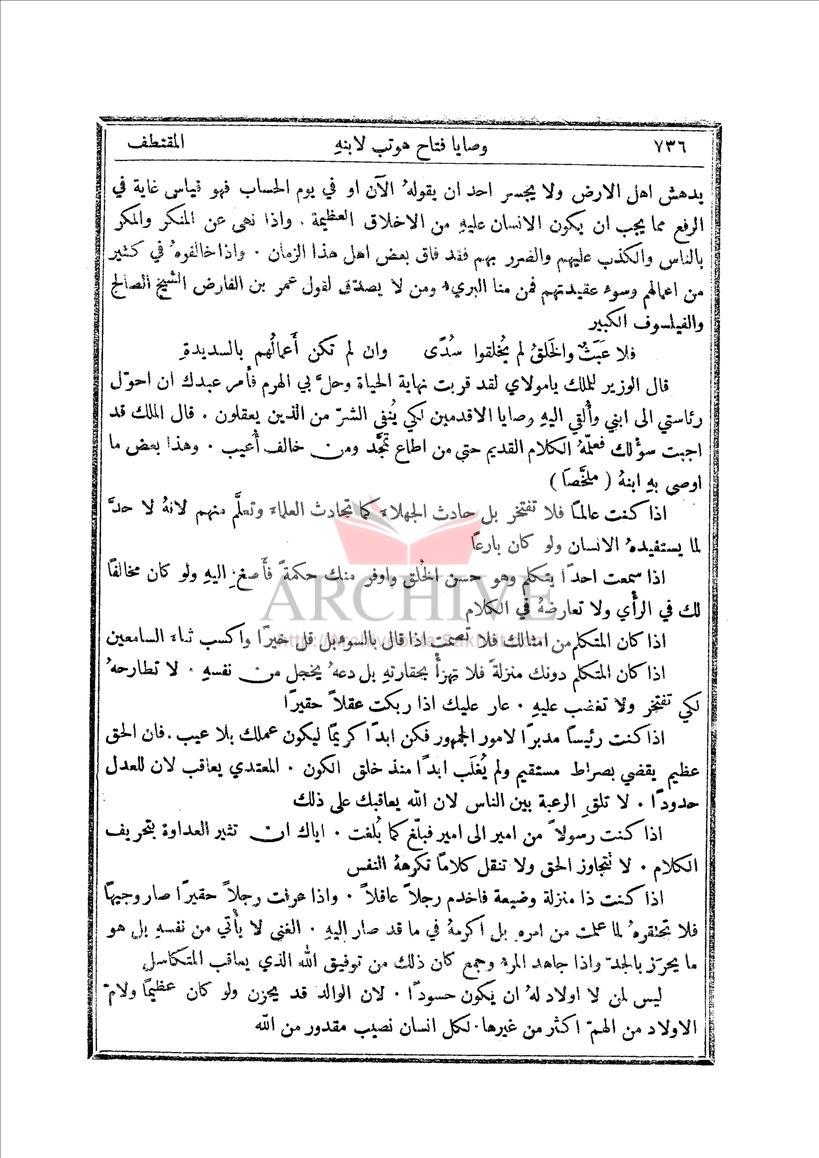 ٧٣٦ وصايا فتاح هوتب لابنهِ المقتطف
يدهش اهل الارض ولا يجسر احد ان يقولهُ الآن او في يوم الحساب فهو قياس غاية في
الرفع مما يجب ان يكون الانسان عليهِ من الاخلاق العظيمة . واذا نهى عن المنكر والمكر
بالناس والكذب عليهم والضرر بهم فقد فاق بعض اهل هذا الزمان . واذا خالفوهُ في كثير
من اعمالهم وسوء عقيدتهم فمن منا البريء ومن لا يصدّق لقول عمر بن الفارض الشيخ الصالح
والفيلسوف الكبير
فلا عَبَثٌ والخَلقُ لم يُخلقوا سُدًى وان لم تكن أَعمالُهم بالسديدةِ
قال الوزير للملك يا مولاي لقد قربت نهاية الحياة وحلَّ بي الهرم فأمر عبدك ان احوّل
رئاستي الى ابني وأُلقي اليهِ وصايا الاقدمين لكي يُنفي الشرّ من الذين يعقلون . قال الملك قد
اجبت سؤالك فعلّمهُ الكلام القديم حتى من اطاع تمجَّد ومن خالف أُعيب . وهذا بعض ما
اوصى بهِ ابنهُ ( ملخَّصًا )
اذا كنت عالمًا فلا تفتخر بل حادث الجهلاء كما تحادث العلماء وتعلَّم منهم لانهُ لا حدَّ
لما يستفيدهُ الانسان ولو كان بارعًا
اذا سمعت احدًا يتكلم وهو حسن الخُلق واوفر منك حكمةً فأَصغِ اليهِ ولو كان مخالفًا
لك في الرأي ولا تعارضهُ في الكلام
ARCHIVE
اذا كان المتكلم من امثالك فلا تصمت اذا قال بالسوء بل قل خيرًا واكسب ثناء السامعين
اذا كان المتكلم دونك منزلةً فلا تهزأْ بحقارتهِ بل دعهُ يخجل من نفسهِ . لا تطارحهُ
لكي تفتخر ولا تغضب عليهِ . عار عليك اذا ربكت عقلاً حقيرًا
اذا كنت رئيسًا مدبرًا لامور الجمهور فكن ابدًا كريمًا ليكون عملك بلا عيب . فان الحق
عظيم يقضي بصراط مستقيم ولم يُغلَب ابدًا منذ خلق الكون . المعتدي يعاقب لان للعدل
حدودًا . لا تلقِ الرعبة بين الناس لان الله يعاقبك على ذلك
اذا كنت رسولاً من امير الى امير فبلّغ كما بُلغت . اياك ان تثير العداوة بتحريف
الكلام . لا تتجاوز الحق ولا تنقل كلامًا تكرههُ النفس
اذا كنت ذا منزلة وضيعة فاخدم رجلاً عاقلاً . واذا عرفت رجلاً حقيرًا صار وجيهًا
فلا تحتقرهُ لما علمت من امرهِ بل اكرمهُ في ما قد صار اليهِ . الغنى لا يأتي من نفسهِ بل هو
ما يحرَز بالجدّ واذا جاهد المرء وجمع كان ذلك من توفيق الله الذي يعاقب المتكاسل
ليس لمن لا اولاد لهُ ان يكون حسودًا . لان الوالد قد يحزن ولو كان عظيمًا ولامّ
الاولاد من الهمّ اكثر من غيرها . لكل انسان نصيب مقدور من الله